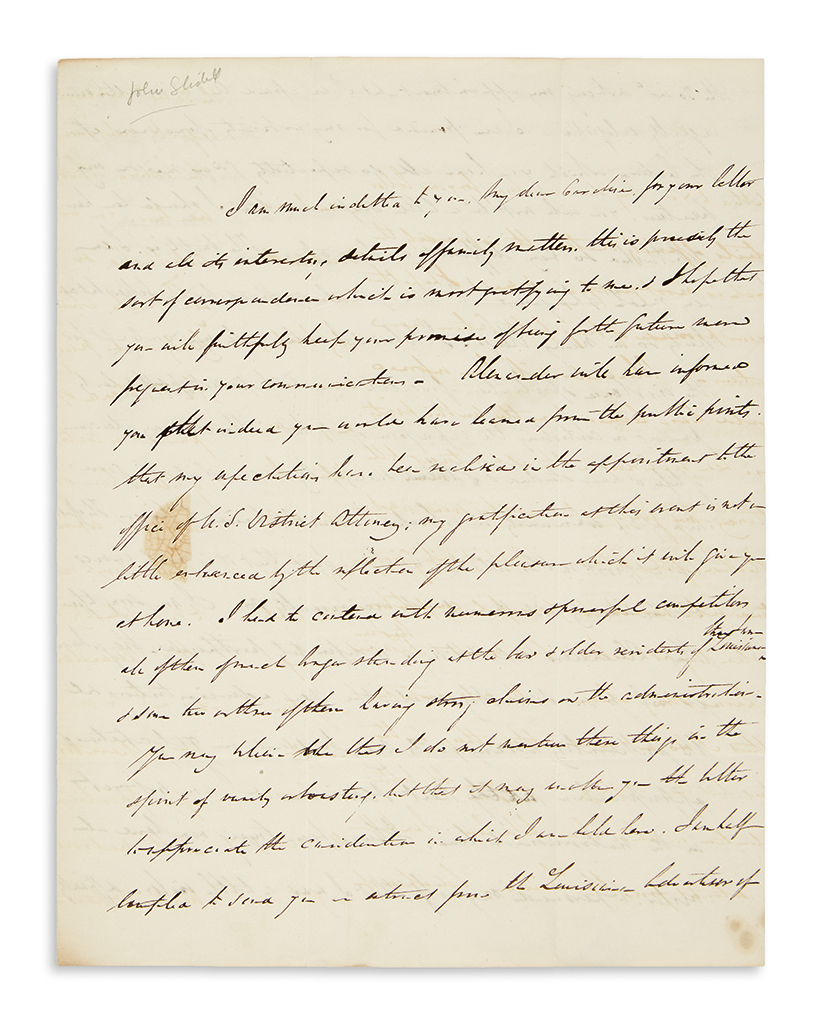 John Slidell
I am much indebted to you, My dear Caroline, for your letter
and all its interesting details of family matters, this is precisely the
sort of correspondence which is most gratifying to me, & I hope that
you will faithfully keep your promise of being for the future more
frequent in your communications. Alexander will have informed
you indeed you would have learned from the public prints.
that my expectations have been realised in the appointment to the
office of U. S. District Attorney; my gratification at this event is not a
little enhanced by the reflection of the pleasure which it will give you
at home. I had to contend with numerous & powerful competitors
all of them of much longer standing at the bar & older residents of Louisiana
& some two or three of them having strong claims on the administration.
You may believe that I do not mention these things in the
spirit of vanity or boasting, but that it may enable you the better
to appreciate the consideration in which I am held here. I am half
tempted to send you an extract from the Louisiana Advertiser of